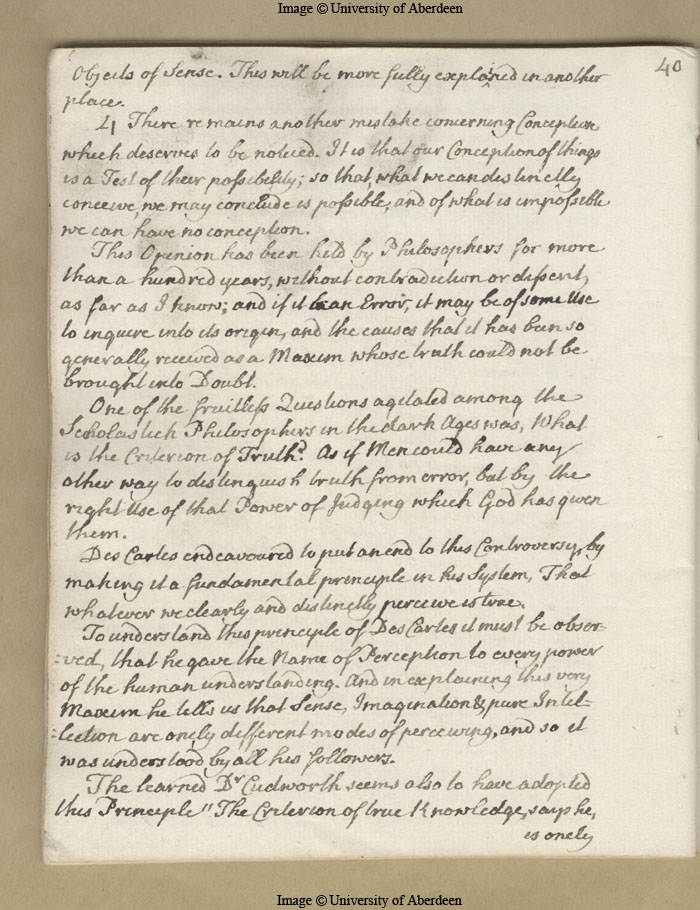 Image © University of Aberdeen
40
Objects of Sense. This will be more fully explained in another
place.
4 There remains another mistake concerning Conception
which deserves to be noticed. It is that our Conception of things
is a Test of their possibility; so that, what we can distinctly
conceive, we may conclude is possible, and of what is impossible
we can have no conception.
This Opinion has been held by Philosophers for more
than a hundred years, without contradiction or dissent,
as far as I know; and if it be an Error, it may be of some Use
to inquire into its origin, and the causes that it has been so
generally received as a Maxim whose truth could not be
brought into Doubt.
One of the fruitless Questions agitated among the
Scholastick Philosophers in the dark Ages was, What
is the Criterion of Truth? As if Men could have any
other way to distinguish truth from error, but by the
right Use of that Power of Judging which God has given
them.
Des Cartes endeavoured to put an end to this Controversy, by
making it a fundamental principle in his System, That
whatever we clearly and distinctly perceive is true.
To understand this principle of Des Cartes it must be obser-
:ved, that he gave the Name of Perception to every power
of the human understanding. And in explaining this very
Maxim he tells us that Sense, Imagination & pure Intel-
:lection are onely different modes of perceiving, and so it
was understood by all his followers.
The learned Dr Cudworth seems also to have adopted
this Principle " The Criterion of true Knowledge, says he,
is onely
Image © University of Aberdeen